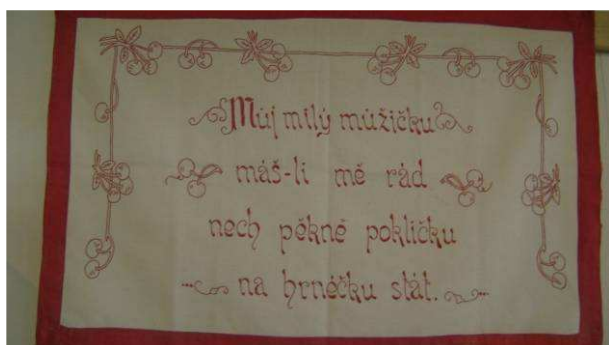 Můj milý mužíčku
máš-li mě rád
nech pěkně pokličku
na hrnéčku stát.